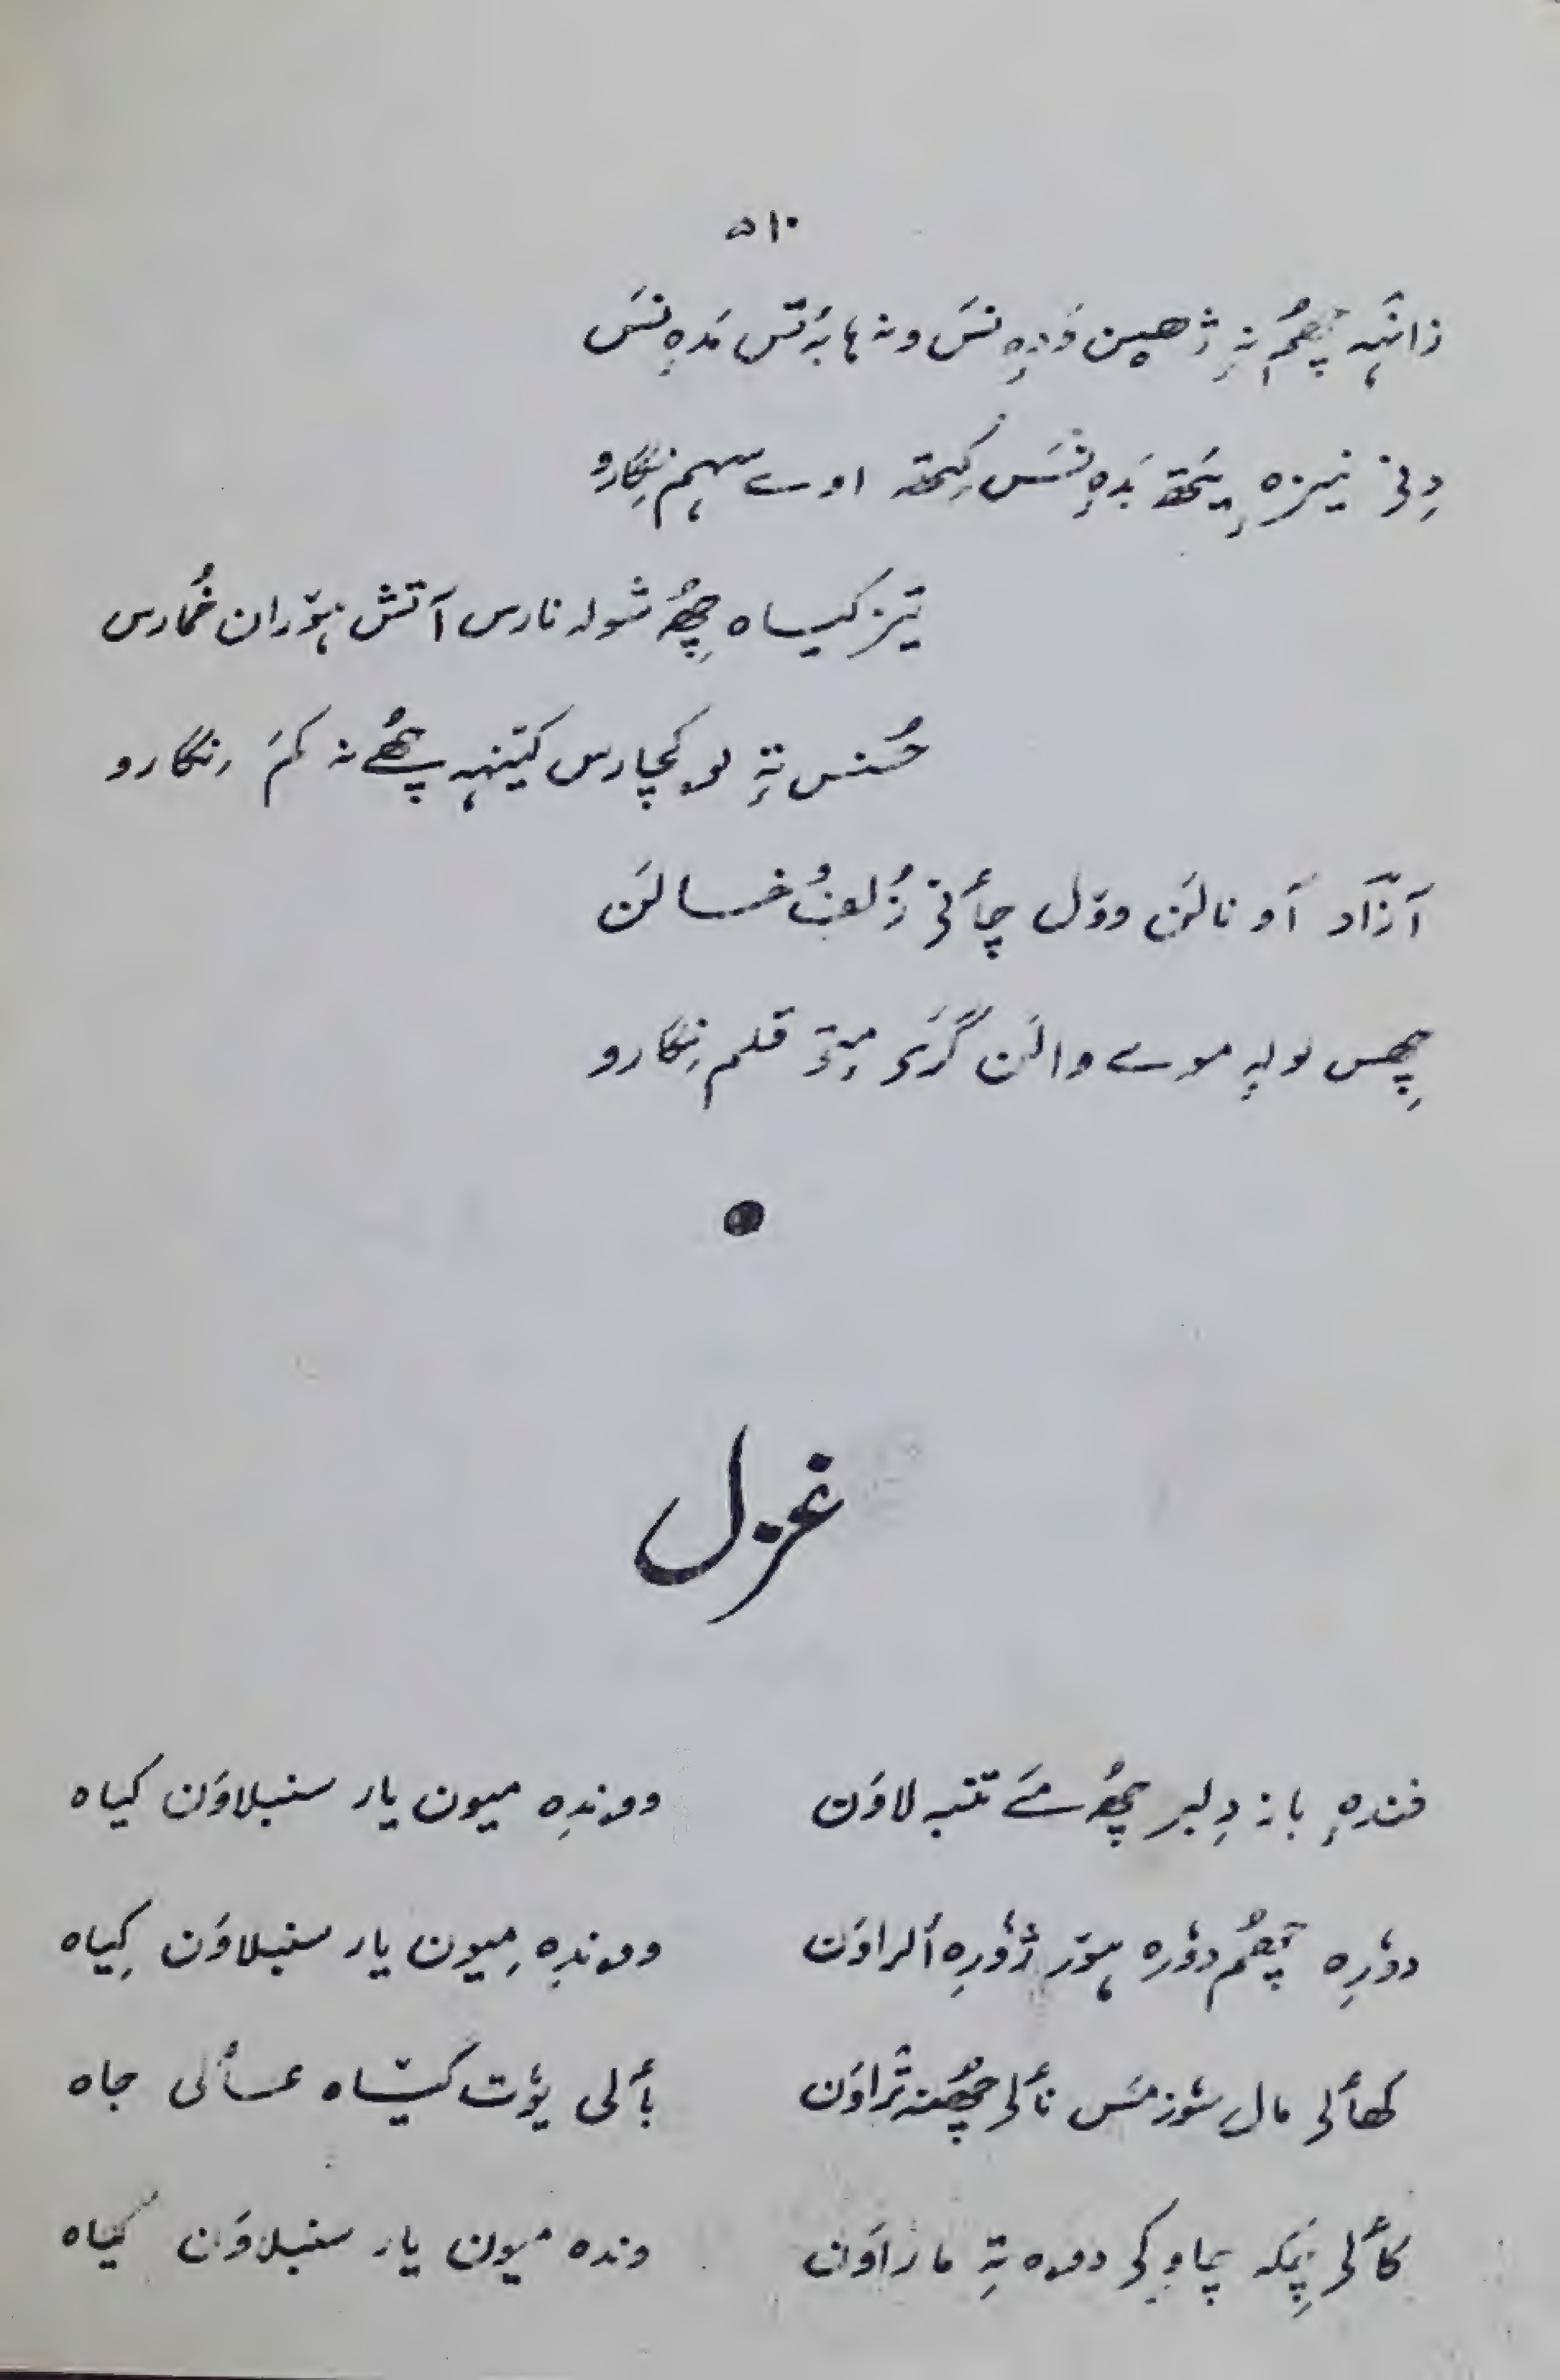 ۵۱۰
زانہہ چھُم نہٕ ژھین وَدٕہ نسَ ونہ ہا بہَ تس مَدٕہ نسَ
دِنۍ نیزہٕ ہیتھ بَدٕہ نسَس کِتھہ اوسے سہم نِگارو
تیز کیساہ چھِ شولہ نارس آتش ہوٚران خُمارس
حُسنس تہٕ لوکچارس کینہہ چھُے نہ کم نگارو
آزاد آو نالن وول چأنۍ زُلف خالن
چھِس لولہٕ موے والَن گَرَے مےٚ قلم نِگارو
غزل
فندہٕ باز دِلبر چھُ مےَ تنبہ لاوَن
ووندِہ میون یار سنبلاوَن کیاہ
دورِہ چھُم دورہ ہوٚر ژورِہ ألراوَن
ووندِہ میون یار سنبلاوَن کیاہ
کھألۍ مال شوز مَس نألۍ چھُنہ ترٛاوَن
بألی یوٗت کیساہ عألی جاہ
کألۍ پَکہ وودہ تہٕ مازراوَن
وندہ میون یار سنبلاوَن کیاہ